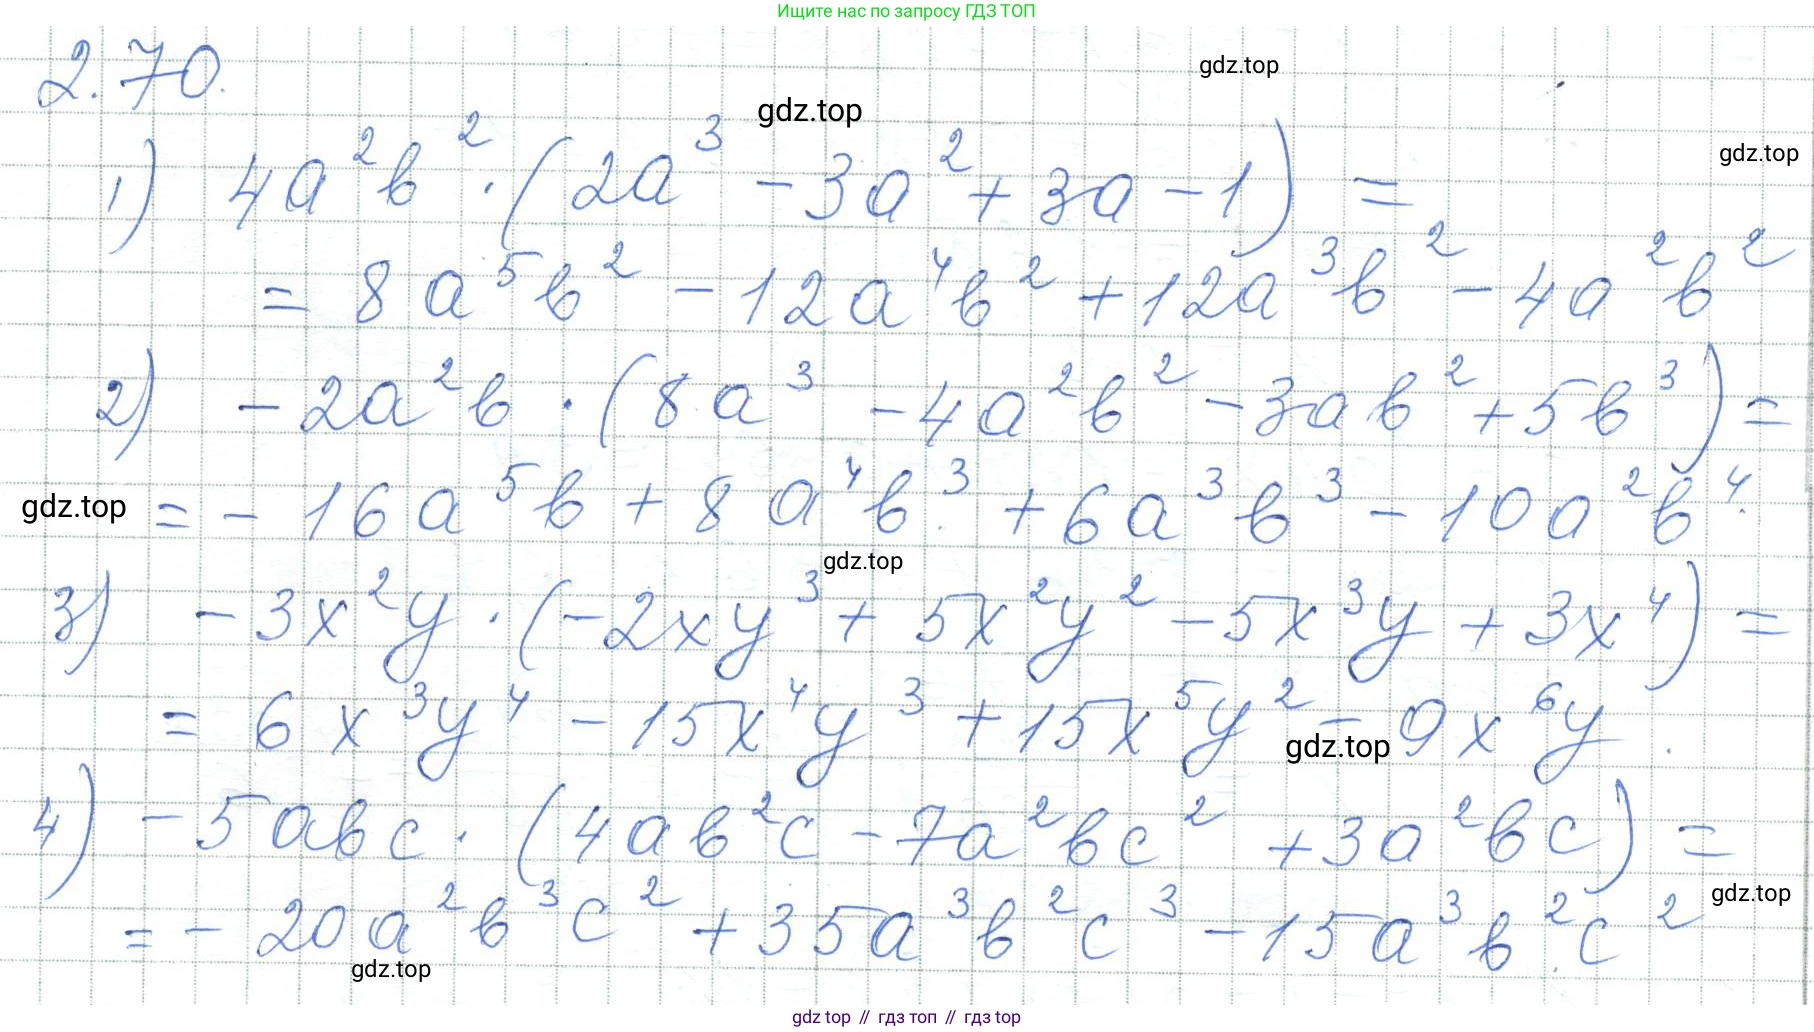 Ищите нас по запросу ГДЗ ТОП
2.70.
gdz.top
gdz.top
gdz.top
1) 4a²b² · (2a³ - 3a² + 3a - 1) =
= 8a⁵b² - 12a⁴b² + 12a³b² - 4a²b²
2) - 2a²b · (8a³ - 4a²b² - 3ab² + 5b³) =
gdz.top
= - 16a⁵b + 8a⁴b³ + 6a³b³ - 10a²b⁴.
gdz.top
3) - 3x²y · (-2xy³ + 5x²y² - 5x³y + 3x⁴) =
= 6x³y⁴ - 15x⁴y³ + 15x⁵y² - 9x⁶y.
gdz.top
4) - 5abc · (4ab²c - 7a²bc² + 3a²bc) =
gdz.top
= - 20a²b³c² + 35a³b²c³ - 15a³b²c²
gdz.top
gdz top // гдз топ // гдз top